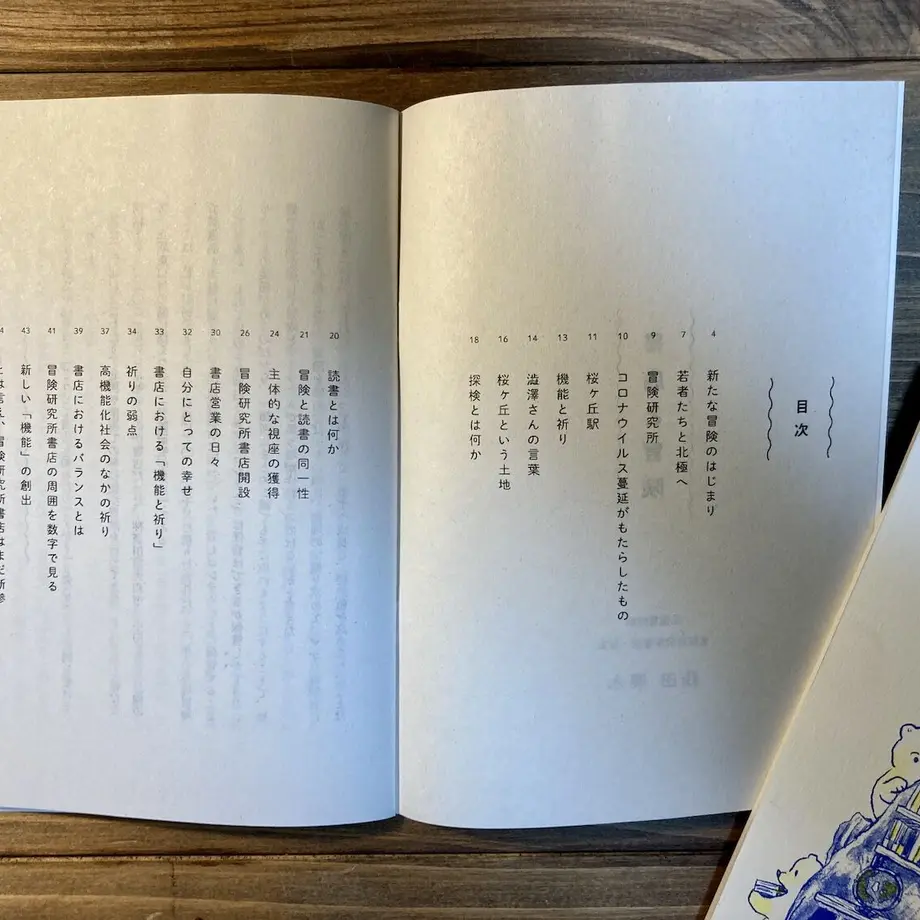 目次
4 新たな冒険のはじまり
7 若者たちと北極へ
9 冒険研究所
10 コロナウイルス蔓延がもたらしたもの
11 桜ヶ丘駅
13 機能と祈り
14 澁澤さんの言葉
16 桜ヶ丘という土地
18 探検とは何か
20 読書とは何か
21 冒険と読書の同一性
24 主体的な視座の獲得
26 冒険研究所書店開設
30 書店営業の日々
32 自分にとっての幸せ
33 書店における「機能と祈り」
34 祈りの弱点
37 高機能化社会のなかの祈り
39 書店におけるバランスとは
41 冒険研究所書店の周囲を数字で見る
43 新しい「機能」の創出
とは言え、冒険研究所書店はまだ新参